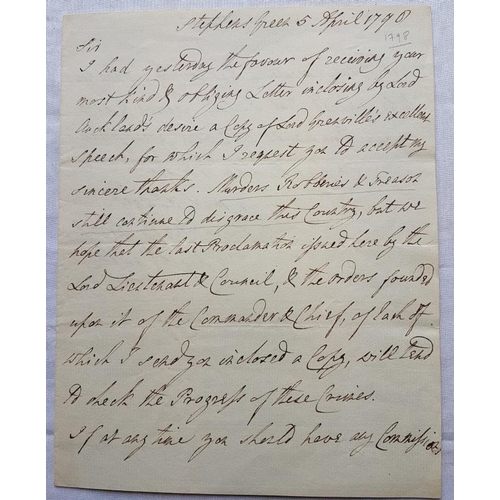 Stephens Green 5 April 1798
1798
Sir
I had yesterday the favour of receiving your
most kind & obliging Letter inclosing by Lord
Auckland's desire a Copy of Lord Grenville's excellent
Speech, for which I request you to accept my
sincere thanks. Murders Robberies & Treason
still continue to disgrace this Country, but we
hope that the last Proclamation issued here by the
Lord Lieutenant & Council, & the orders founded
upon it of the Commander & Chief, of each of
which I send you inclosed a Copy, will tend
to check the Progress of these Crimes.
If at any time you should have any Commissions